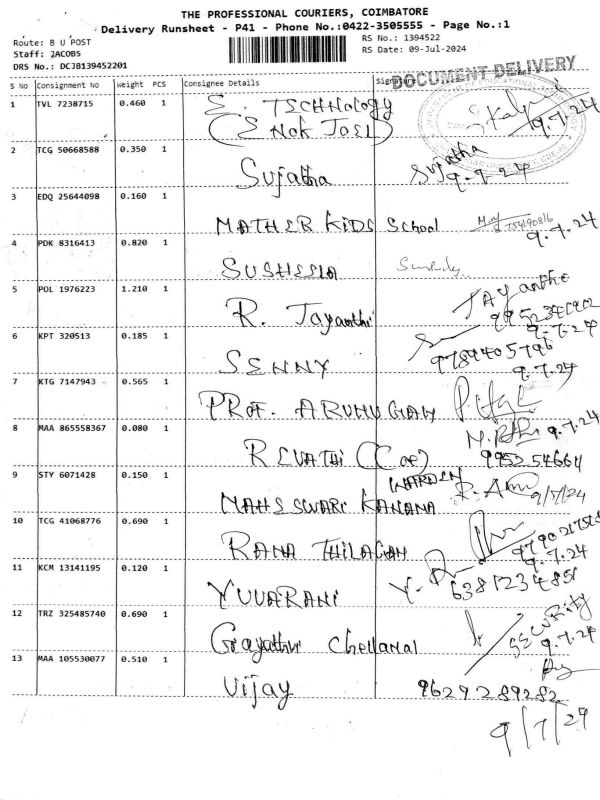 THE PROFESSIONAL COURIERS, COIMBATORE
Delivery Runsheet - P41 - Phone No.:0422-3505555 - Page No.:1
Route: B U POST
RS No.: 1394522
Staff: JACOBS
RS Date: 09-Jul-2024
DRS No.: DCJB139452201
DOCUMENT DELIVERY
S No Consignment No Weight PCS Consignee Details Signature
1 TVL 7238715 0.460 1 E. TECHNology
9.7.24
2 TCG 50668588 0.350 1 Sujatha Sujatha
9.7.24
3 EDQ 25644098 0.160 1 MATHER KIDS School
9.7.24
4 PDK 8316413 0.820 1 SUSHEELA
5 POL 1976223 1.210 1 R. Jayanthi JAyanthi
9.7.24
6 KPT 320513 0.185 1 SENNY 9789405796
9.7.24
7 KTG 7147943 0.565 1 PROF. ARUMUGAM
8 MAA 865558367 0.080 1 REVATHI (COE) 9.7.24
995254664
9 STY 6071428 0.150 1 MAHESWARI KANANA
WARDEN
9/7/24
10 TCG 41068776 0.690 1 RAMA THILAGAM
9.7.24
11 KCM 13141195 0.120 1 YUVARANI 6381234851
12 TRZ 325485740 0.690 1 Gayathri Chellamal SECURITY
9.7.24
13 MAA 105530077 0.510 1 Vijay 9629289282
9/7/24